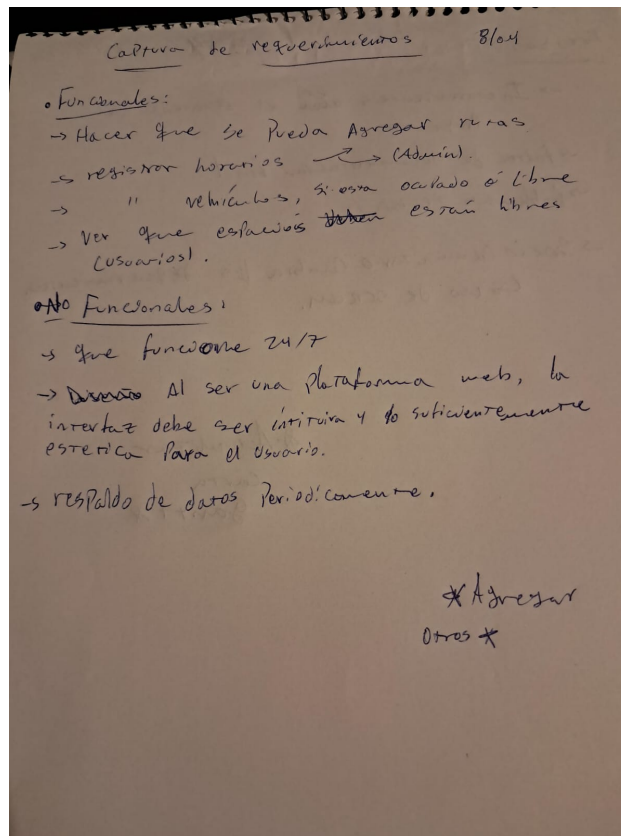 Captura de requerimientos 8/04
• Funcionales:
→ Hacer que se Pueda Agregar rutas
→ registrar horarios → (Admin).
→ " vehículos, si esta ocupado ó libre
→ Ver que espacios están libres
(usuarios).
• No Funcionales:
→ que funcione 24/7
→ Al ser una plataforma web, la
interfaz debe ser intituiva y lo suficientemente
estetica Para el usuario.
→ respaldo de datos Periodicamente.
* Agregar
Otros *